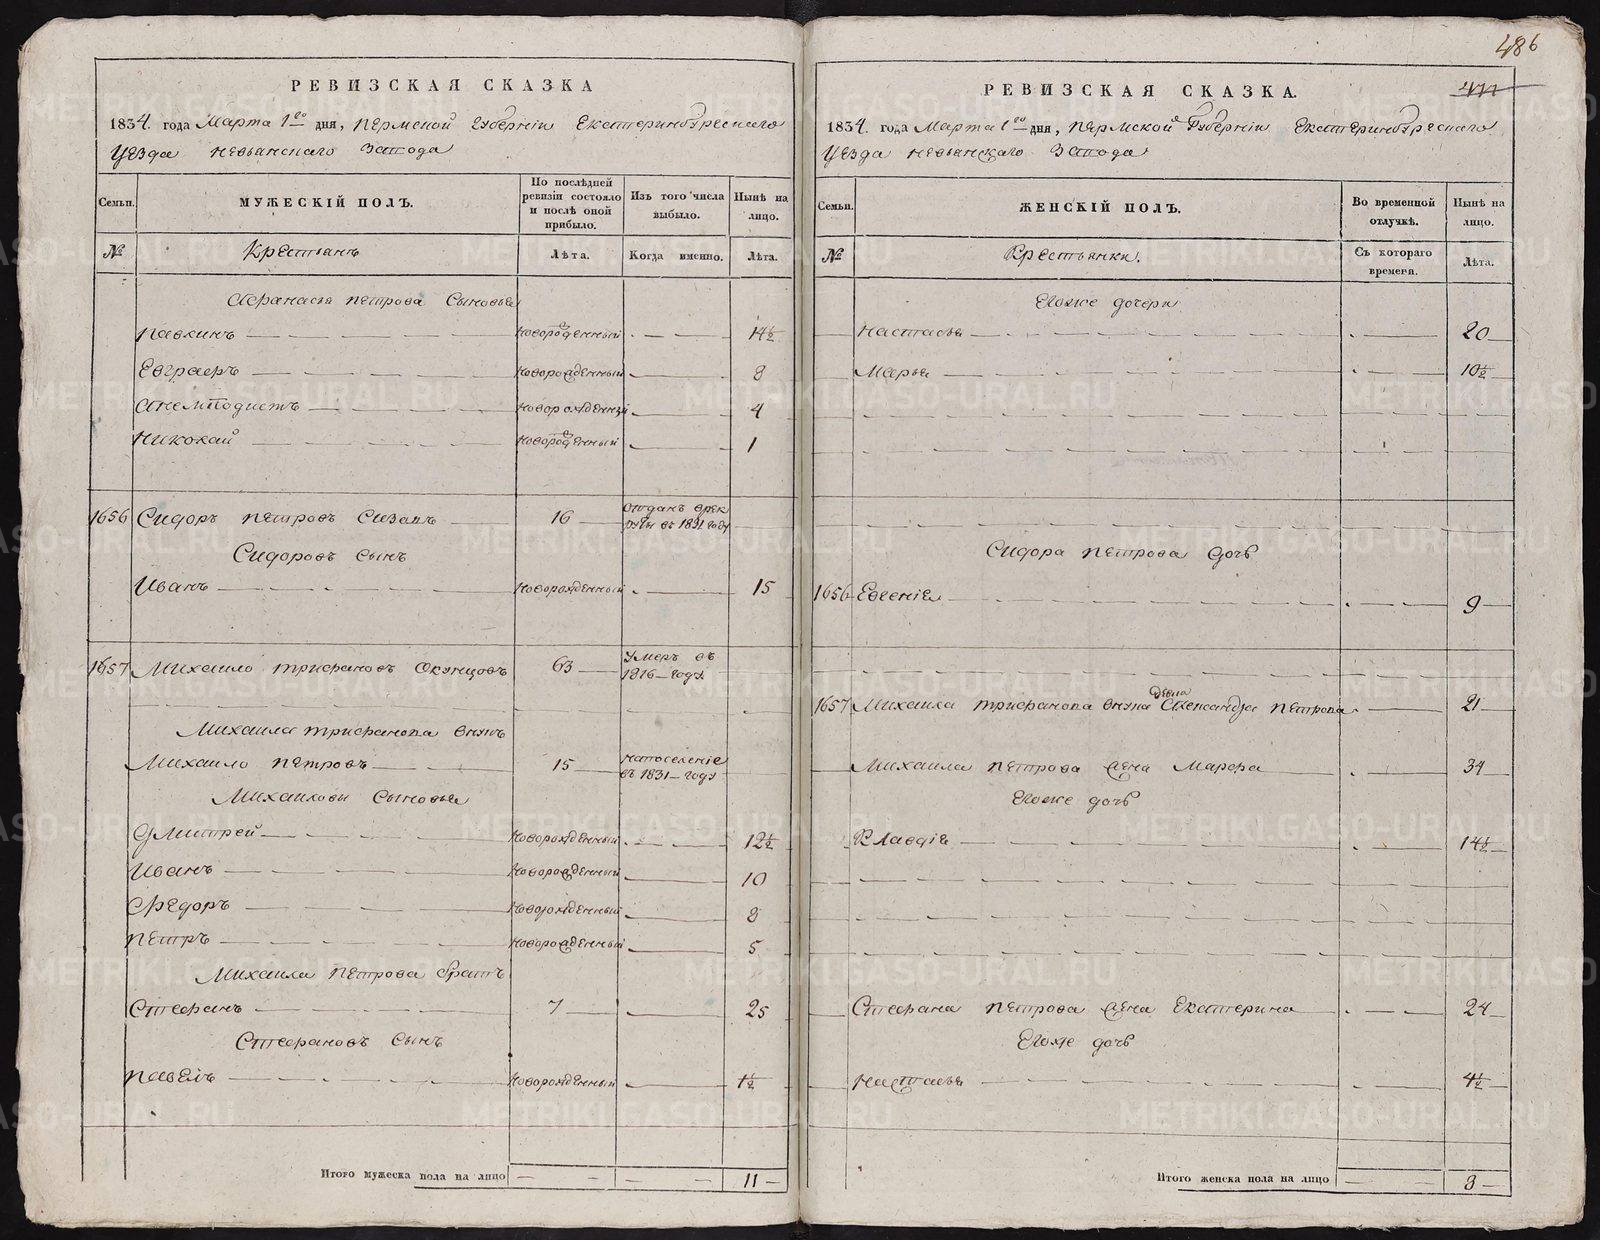 486
477
РЕВИЗСКАЯ СКАЗКА
1834. года Марта 1го дня, Пермской Губернiи Екатеринбургскаго
Уезда Невьянскаго Завода
Семьи. МУЖЕСКIЙ ПОЛЪ. По послѣдней ревизiи состояло и послѣ оной прибыло. Изъ того числа выбыло. Нынѣ на лицо.
№ Крестьянъ Лѣта. Когда именно. Лѣта.
Афанасья Петрова Сыновья
Павлинъ Новорожденный 14½
Евграфъ Новорожденный 8
Анемподистъ Новорожденный 4
Николай Новорожденный 1
1656 Сидоръ Петровъ Сизовъ 16 Отданъ врек руты въ 1831 году
Сидоровъ Сынъ
Иванъ Новорожденный 15
1657 Михаило Трифановъ Скунцовъ 63 Умеръ въ 1816 году
Михаила Трифанова Внукъ
Михаило Петровъ 15 Напоселенiе въ 1831 году
Михаиловы Сыновья
Дмитрей Новорожденный 12½
Иванъ Новорожденный 10
Федоръ Новорожденный 8
Петръ Новорожденный 5
Михаила Петрова братъ
Стефанъ 7 25
Стефановъ Сынъ
Павелъ Новорожденный 1½
Итого мужеска пола на лицо 11
РЕВИЗСКАЯ СКАЗКА.
1834. года Марта 1го дня, Пермской Губернiи Екатеринбургскаго
Уезда Невьянскаго Завода
Семьи. ЖЕНСКIЙ ПОЛЪ. Во временной отлучкѣ. Нынѣ на лицо.
№ Крестьянки. Съ котораго времени. Лѣта.
Егоже дочери
Настасья 20
Марья 10½
Сидора Петрова дочь
1656 Евгенiя 9
1657 Михаила Трифанова внука девка Александра Петрова 21
Михаила Петрова жена Марфа 34
Егоже дочь
Клавдiя 14½
Стефана Петрова жена Екатерина 24
Егоже дочь
Настасья 4½
Итого женска пола на лицо 8
METRIKI.GASO-URAL.RU